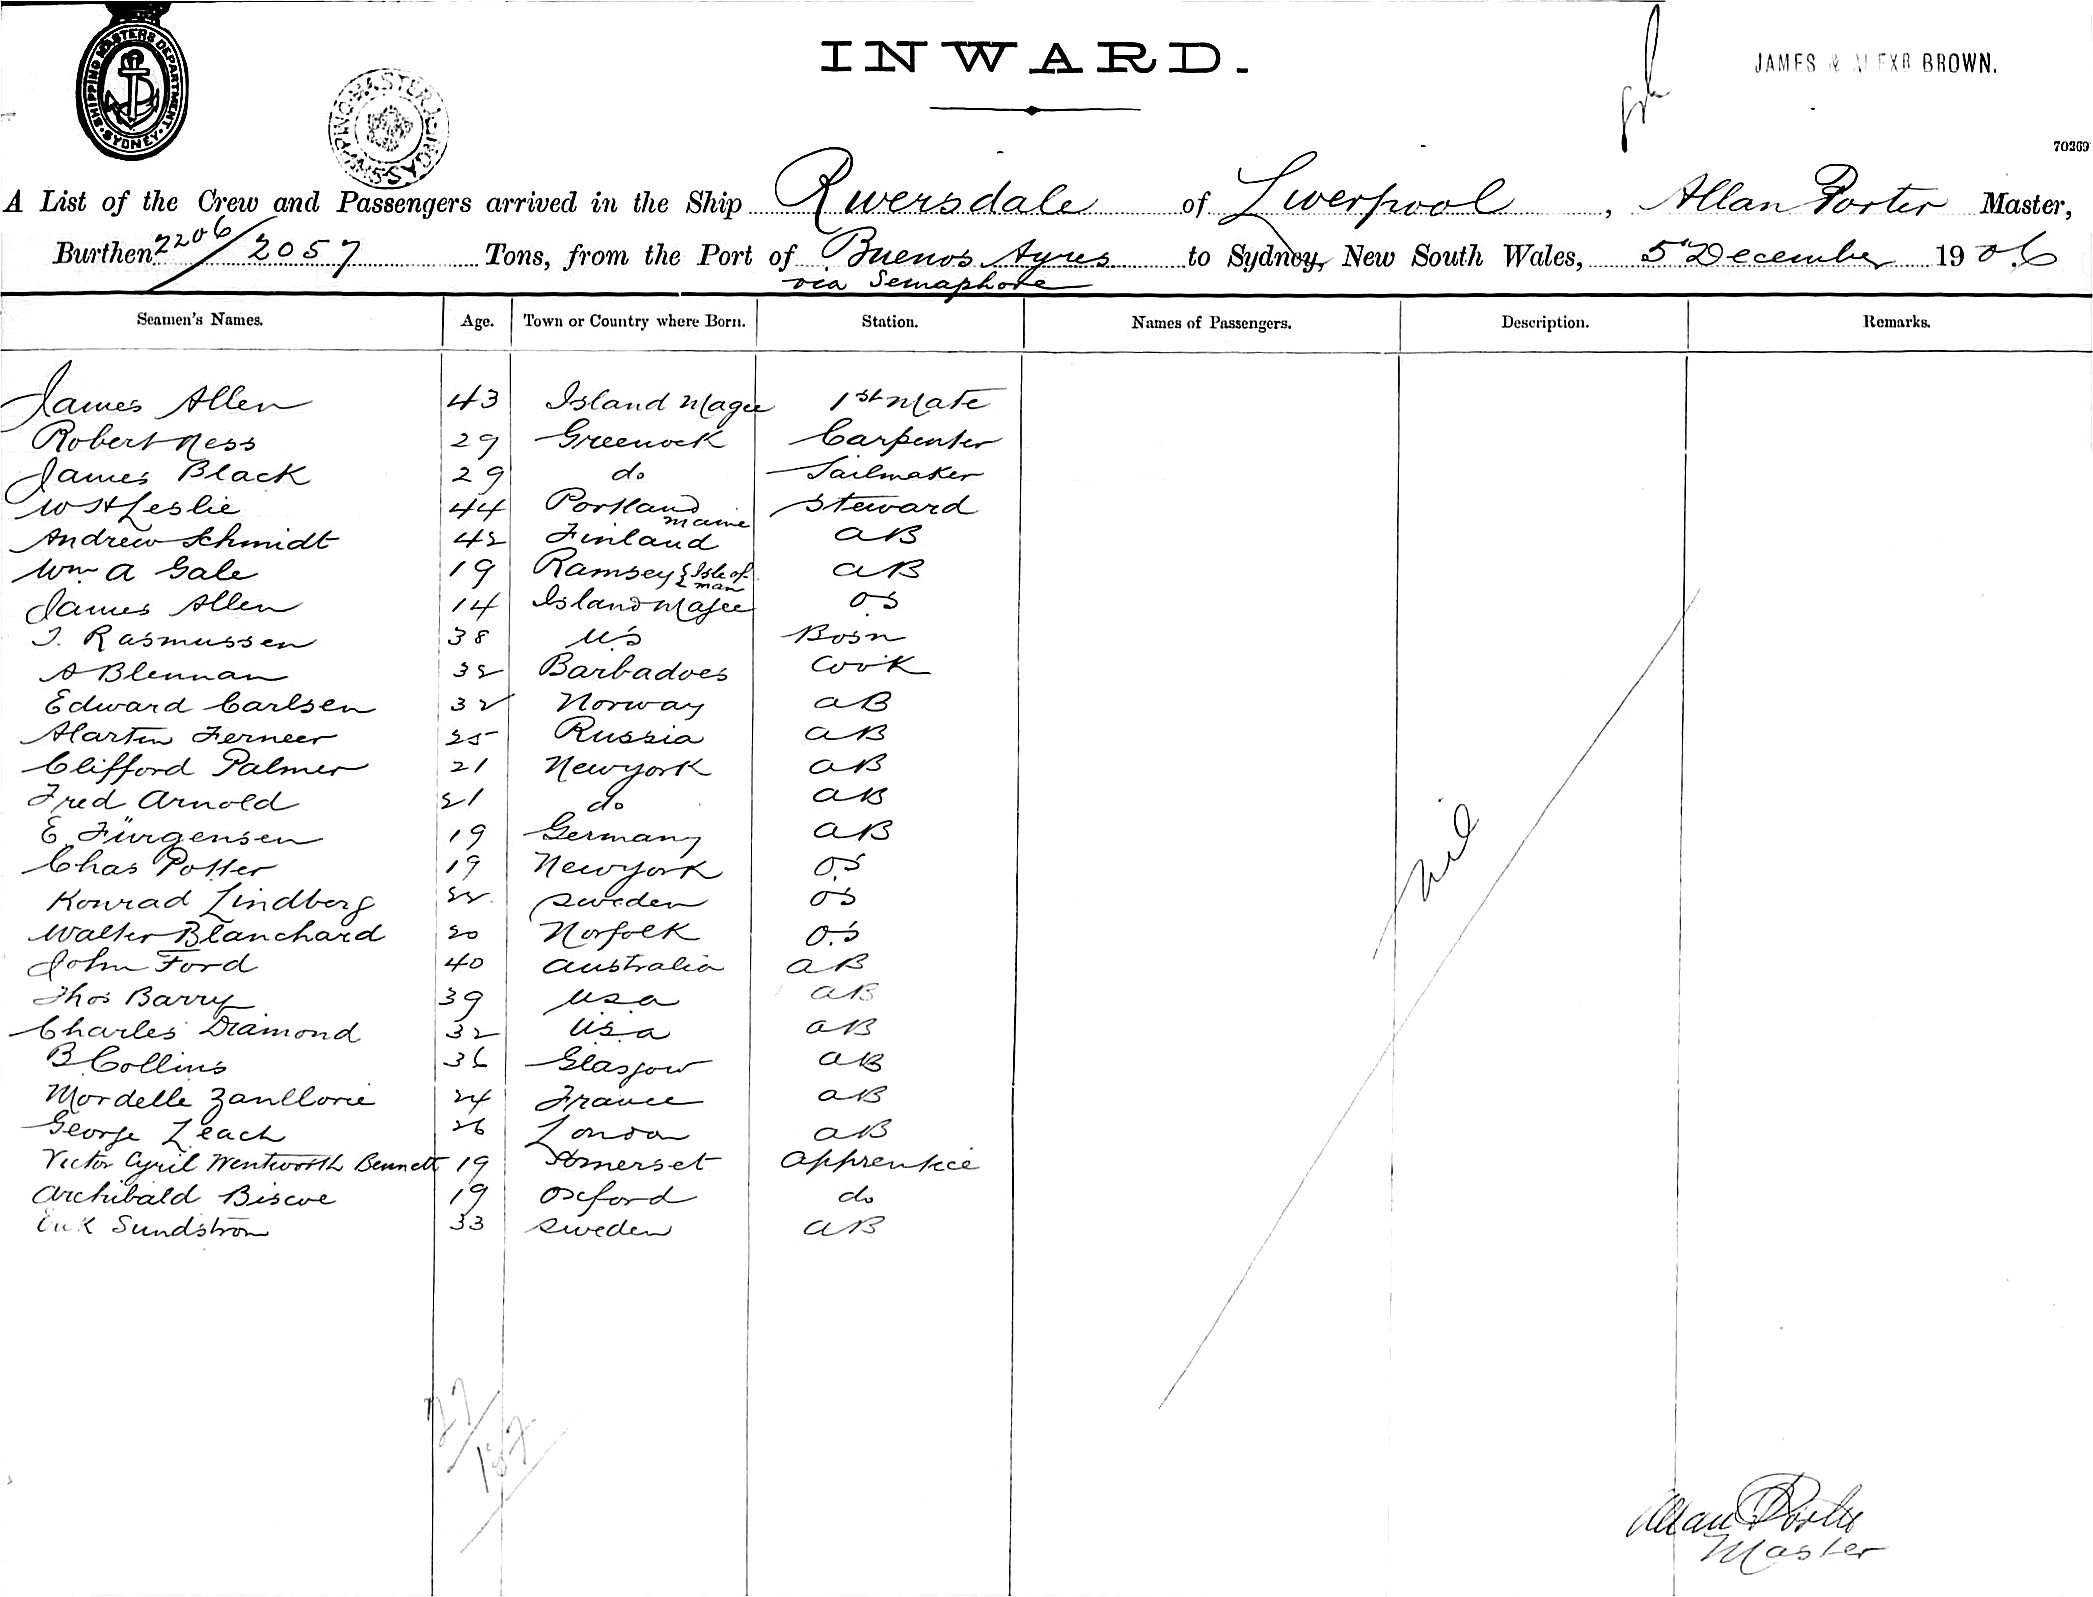 SHIPPING MASTERS DEPARTMENT. SYDNEY.
INWARD.
JAMES & ALEXR BROWN.
70269
A List of the Crew and Passengers arrived in the Ship Riversdale of Liverpool, Allan Porter Master,
Burthen 2206/2057 Tons, from the Port of Buenos Ayres to Sydney, New South Wales, 5th December 1906
via Semaphore
Seamen's Names. Age. Town or Country where Born. Station. Names of Passengers. Description. Remarks.
James Allen 43 Island Magee 1st Mate
Robert Ness 29 Greenock Carpenter
James Black 29 do Sailmaker
W H Leslie 44 Portland Maine Steward
Andrew Schmidt 42 Finland AB
Wm A Gale 19 Ramsey Isle of Man AB
James Allen 14 Island Magee OS
I. Rasmussen 38 US Bosn
A Blennan 32 Barbadoes Cook
Edward Carlsen 32 Norway AB
Martin Ferneer 25 Russia AB
Clifford Palmer 21 Newyork AB
Fred Arnold 21 do AB
E Jürgensen 19 Germany AB
Chas Potter 19 Newyork O.S
Konrad Lindberg 22 Sweden OS
Walter Blanchard 20 Norfolk O.S
John Ford 40 Australia AB
Thos Barry 39 U.S.A AB
Charles Diamond 32 U.S.A AB
B Collins 36 Glasgow AB
Mordelle Zanllorie 24 France AB
George Leach 26 London AB
Victor Cyril Wentworth Bennett 19 Somerset Apprentice
Archibald Biscoe 19 Oxford do
Erik Sundstrom 33 Sweden AB
Nil
27/
137
Allan Porter
Master